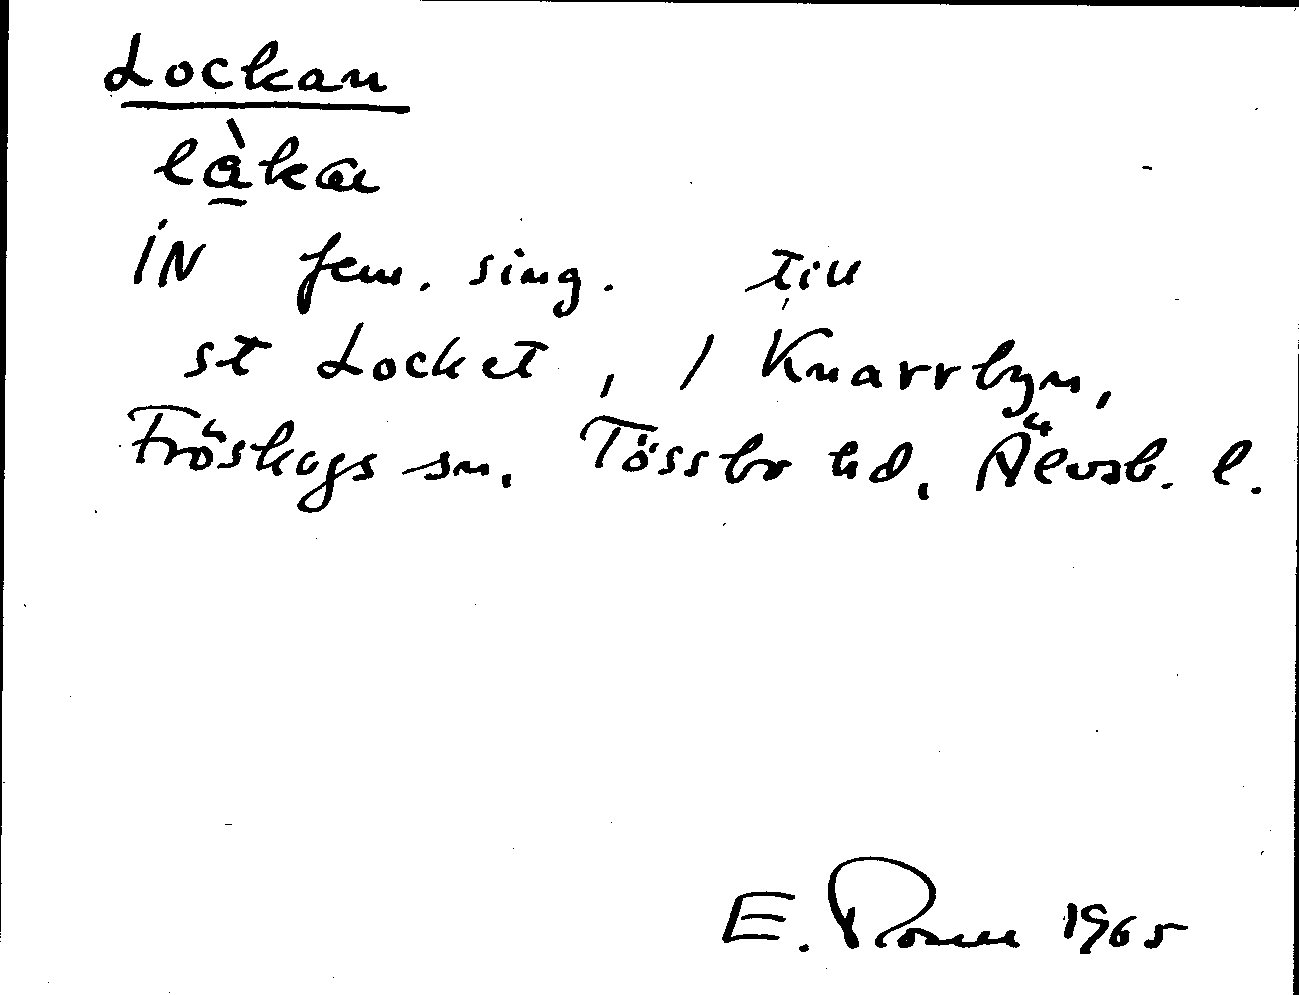 Lockan
lå̱̀ka
IN fem. sing. till
st Locket, / Knarrbyn,
Fröskogs sn. Tössbo hd. Älvsb. l.
E. 1965